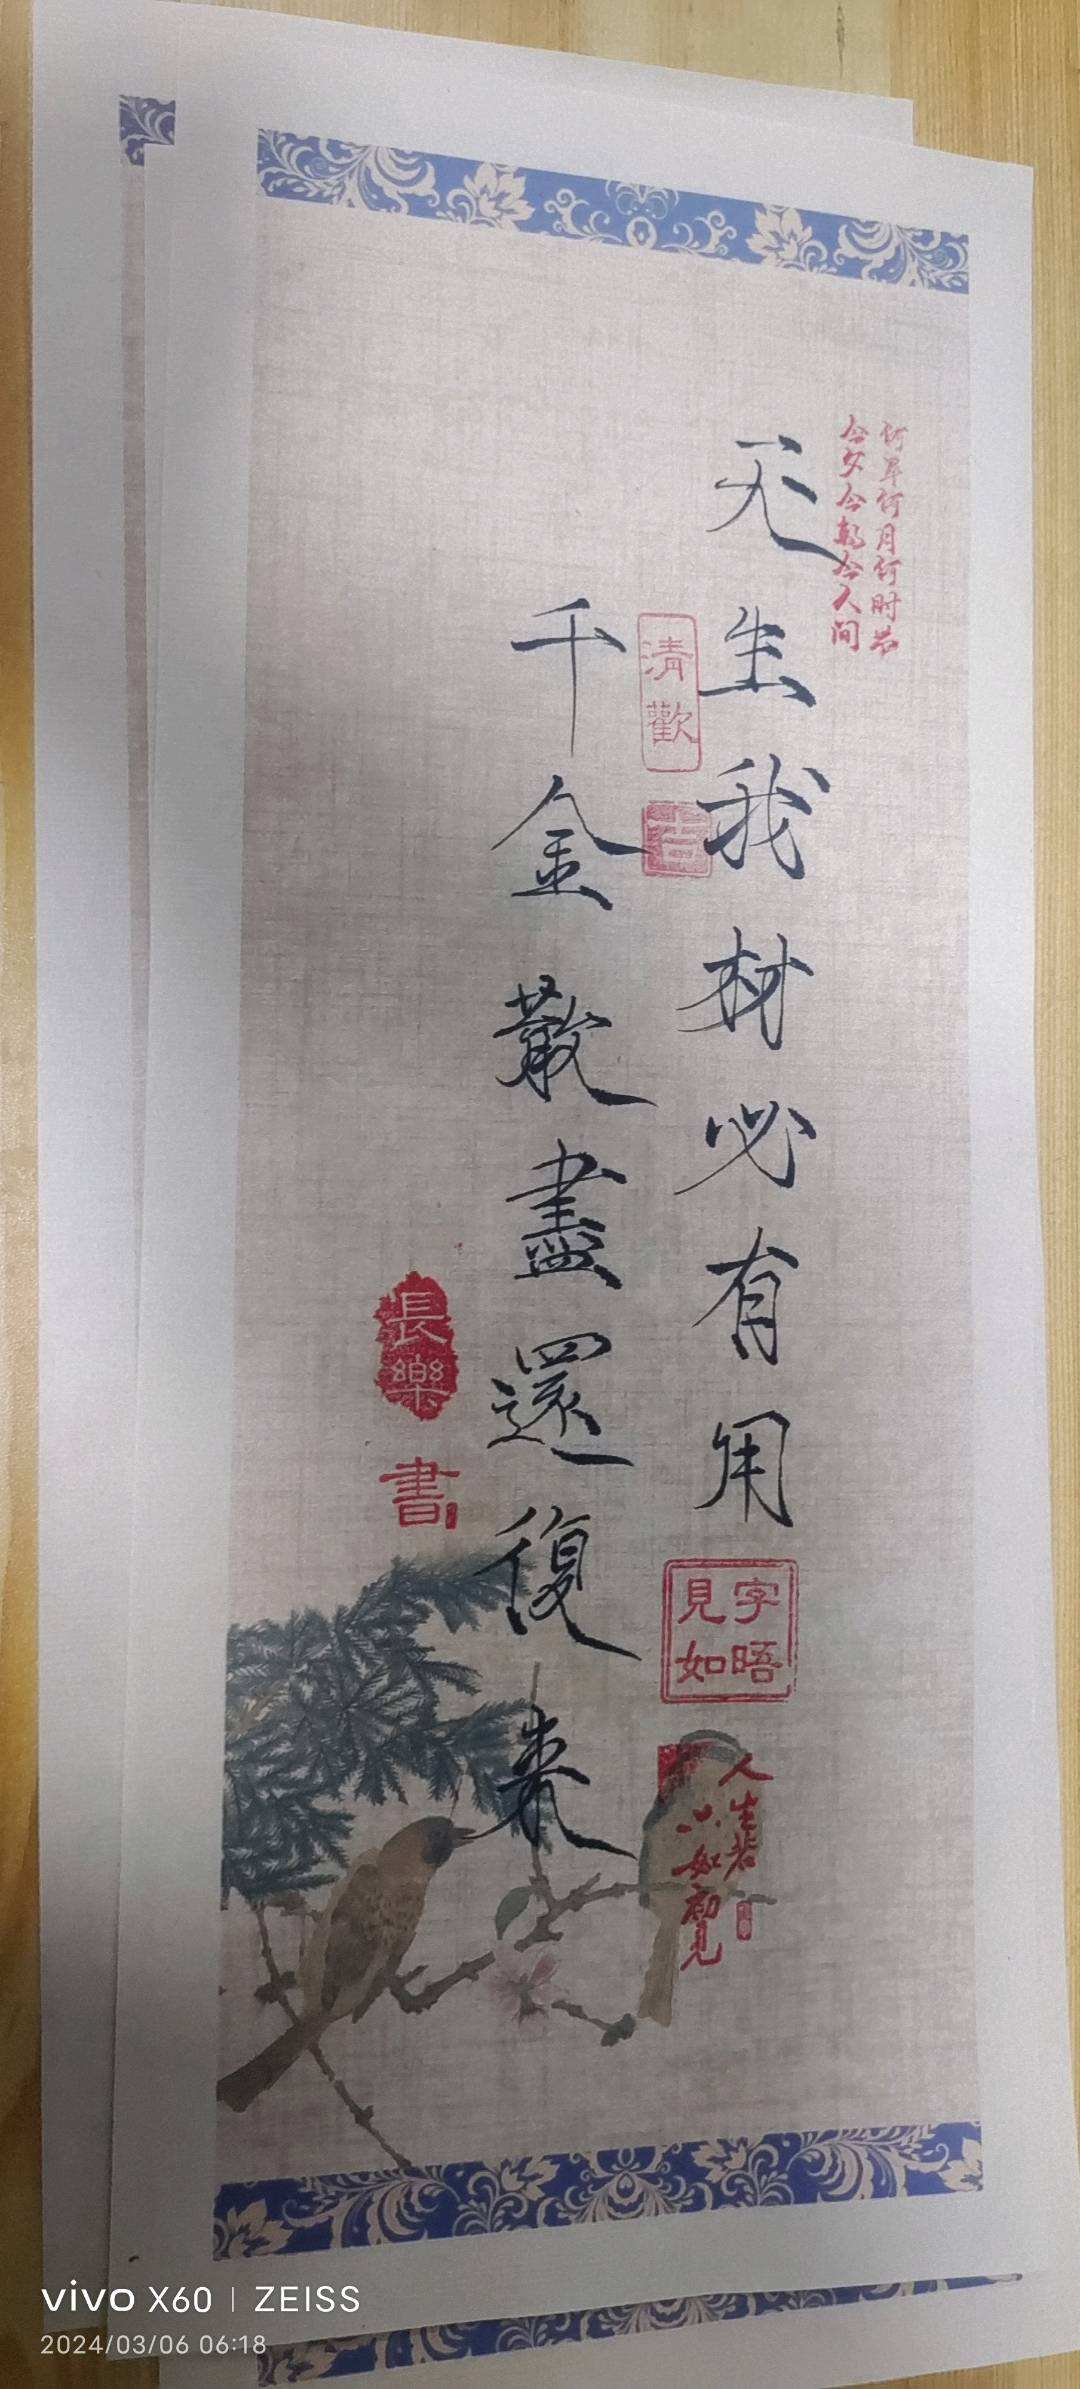 何年何月何时
今夕今朝今人间
天生我材必有用
清歡
吉
千金散盡還復来
見字
如晤
人生若
只如初見
長樂
書
vivo X60 | ZEISS
2024/03/06 06:18